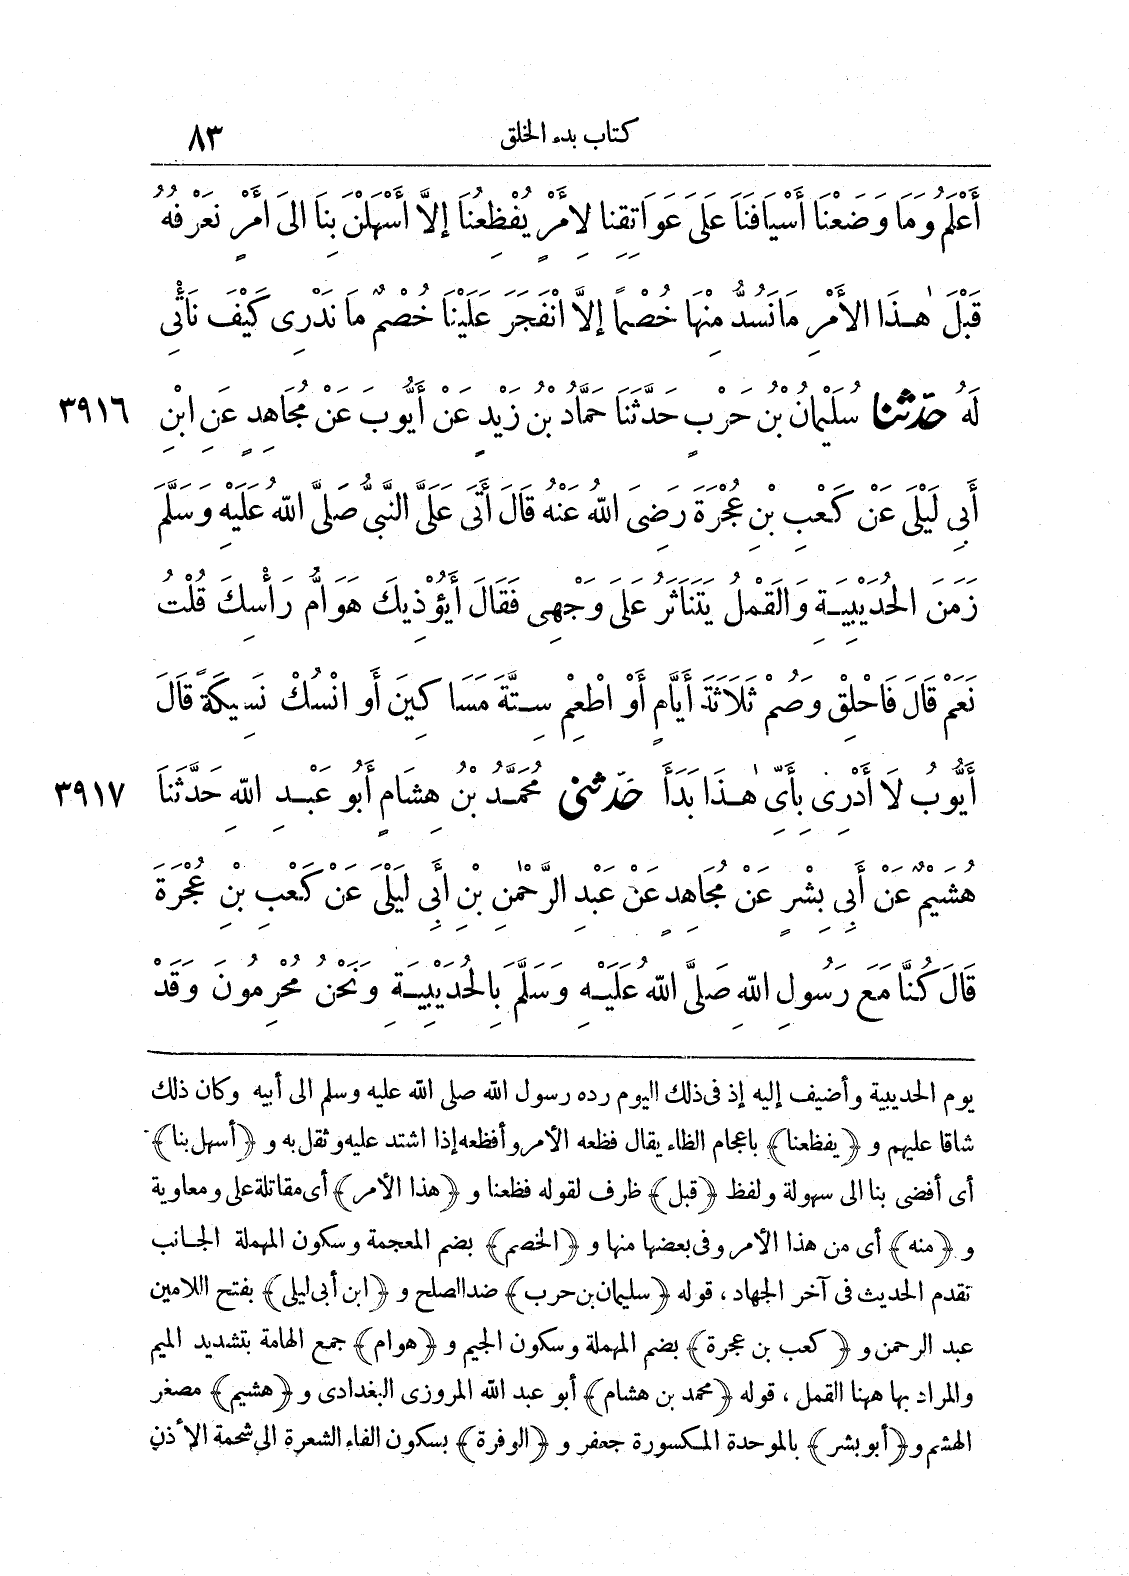 كتاب بدء الخلق ٨٣
أَعْلَمُ وَمَا وَضَعْنَا أَسْيَافَنَا عَلَى عَوَاتِقِنَا لِأَمْرٍ يُفْظِعُنَا إِلَّا أَسْهَلْنَ بِنَا الى أَمْرٍ نَعْرِفُهُ
قَبْلَ هٰذَا الأَمْرِ مَا نَسُدُّ مِنْهَا خُصْمًا إِلَّا انْفَجَرَ عَلَيْنَا خُصْمٌ مَا نَدْرِى كَيْفَ نَأْتِى
لَهُ حدّثنا سُلَيْمَانُ بْنُ حَرْبٍ حَدَّثَنَا حَمَّادُ بْنُ زَيْدٍ عَنْ أَيُّوبَ عَنْ مُجَاهِدٍ عَنِ ابْنِ ٣٩١٦
أَبِى لَيْلَى عَنْ كَعْبِ بْنِ عُجْرَةَ رَضِىَ اللهُ عَنْهُ قَالَ أَتَى عَلَىَّ النَّبِىُّ صَلَّى اللهُ عَلَيْهِ وَسَلَّمَ
زَمَنَ الْحُدَيْبِيَةِ وَالْقَمْلُ يَتَنَاثَرُ عَلَى وَجْهِى فَقَالَ أَيُؤْذِيكَ هَوَامُّ رَأْسِكَ قُلْتُ
نَعَمْ قَالَ فَاحْلِقْ وَصُمْ ثَلَاثَةَ أَيَّامٍ أَوْ اطْعِمْ سِتَّةَ مَسَاكِينَ أَو انْسُكْ نَسِيكَةً قَالَ
أَيُّوبُ لَا أَدْرِى بِأَىِّ هٰذَا بَدَأَ حدّثنى مُحَمَّدُ بْنُ هِشَامٍ أَبُو عَبْدِ اللهِ حَدَّثَنَا ٣٩١٧
هُشَيْمٌ عَنْ أَبِى بِشْرٍ عَنْ مُجَاهِدٍ عَنْ عَبْدِ الرَّحْمٰنِ بْنِ أَبِى لَيْلَى عَنْ كَعْبِ بْنِ عُجْرَةَ
قَالَ كُنَّا مَعَ رَسُولِ اللهِ صَلَّى اللهُ عَلَيْهِ وَسَلَّمَ بِالْحُدَيْبِيَةِ وَنَحْنُ مُحْرِمُونَ وَقَدْ
يوم الحديبية وأضيف إليه إذ فى ذلك اليوم رده رسول الله صلى الله عليه وسلم الى أبيه وكان ذلك
شاقا عليهم و ﴿يفظعنا﴾ باعجام الظاء يقال فظعه الأمر وأفظعه إذا اشتد عليه وثقل به و ﴿أسهل بنا﴾
أى أفضى بنا الى سهولة ولفظ ﴿قبل﴾ ظرف لقوله فظعنا و ﴿هذا الأمر﴾ أى مقاتلة على ومعاوية
و ﴿منه﴾ أى من هذا الأمر وفى بعضها منها و ﴿الخصم﴾ بضم المعجمة وسكون المهملة الجانب
تقدم الحديث فى آخر الجهاد ، قوله ﴿سليمان بن حرب﴾ ضد الصلح و ﴿ابن أبى ليلى﴾ بفتح اللامين
عبد الرحمن و ﴿كعب بن عجرة﴾ بضم المهملة وسكون الجيم و ﴿هوام﴾ جمع الهامة بتشديد الميم
والمراد بها ههنا القمل ، قوله ﴿محمد بن هشام﴾ أبو عبد الله المروزى البغدادى و ﴿هشيم﴾ مصغر
الهشم و ﴿أبو بشر﴾ بالموحدة المكسورة جعفر و ﴿الوفرة﴾ بسكون الفاء الشعرة الى شحمة الأذن